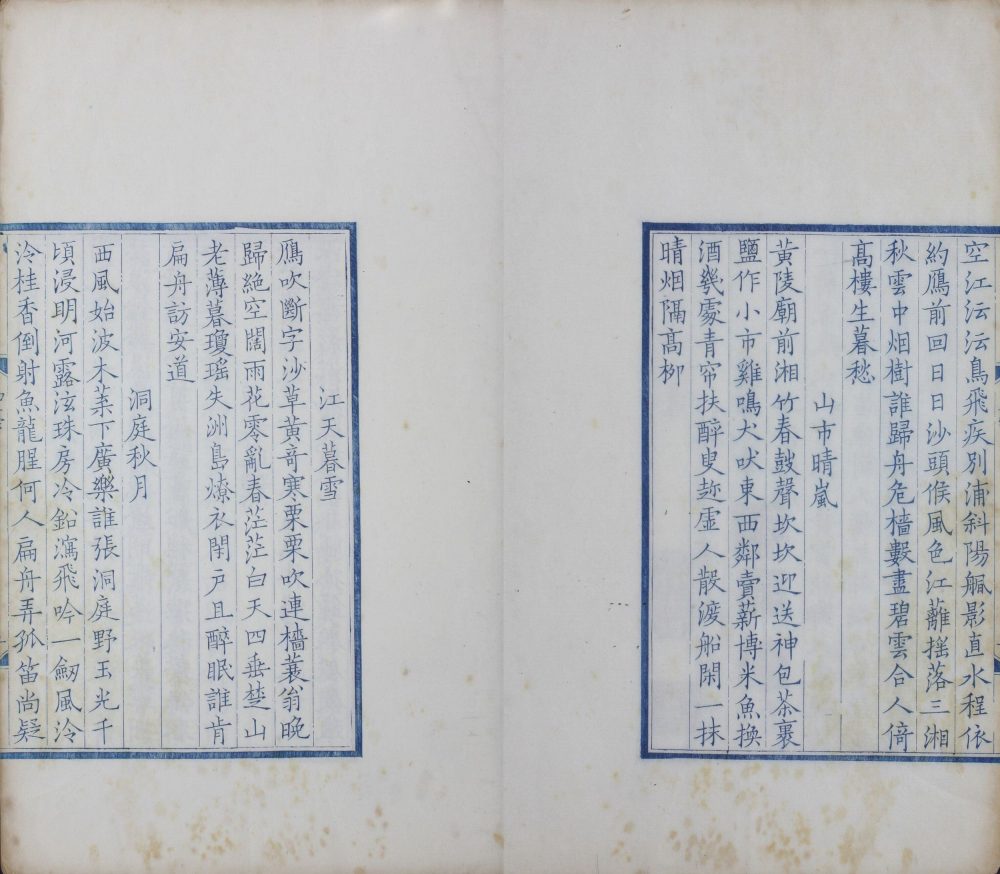 空江沄沄鳥飛疾別浦斜陽颿影直水程依
約鴈前回日日沙頭候風色江蘺搖落三湘
秋雲中烟樹誰歸舟危檣數盡碧雲合人倚
髙樓生暮愁
山市晴嵐
黃陵廟前湘竹春鼓聲坎坎迎送神包茶裹
鹽作小市雞鳴犬吠東西鄰賣薪博米魚換
酒幾處青帘扶醉叟趂虛人散渡船閑一抹
晴烟隔髙柳
江天暮雪
鴈吹斷字沙草黃竒寒栗栗吹連檣蓑翁晚
歸絶空闊雨花零亂春茫茫白天四垂楚山
老薄暮瓊瑶失洲島燎衣閉戸且醉眠誰肯
扁舟訪安道
洞庭秋月
西風始波木葉下廣樂誰張洞庭野玉光千
頃浸明河露泫珠房冷鉛瀉飛吟一劒風泠
泠桂香倒射魚龍腥何人扁舟弄孤笛尚疑